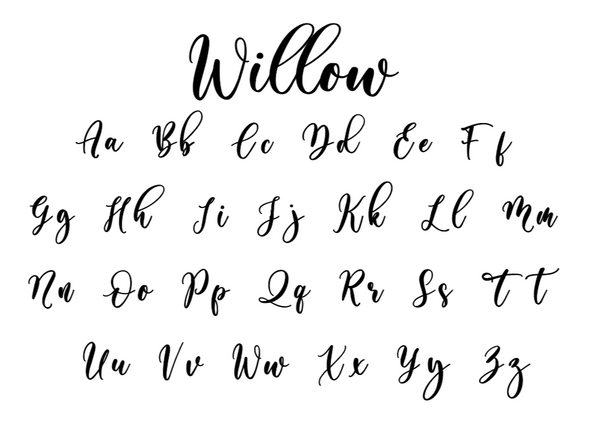 Willow
Aa Bb Cc Dd Ee Ff
Gg Hh Ii Jj Kk Ll Mm
Nn Oo Pp Qq Rr Ss TT
Uu Vv Ww Xx Yy Zz